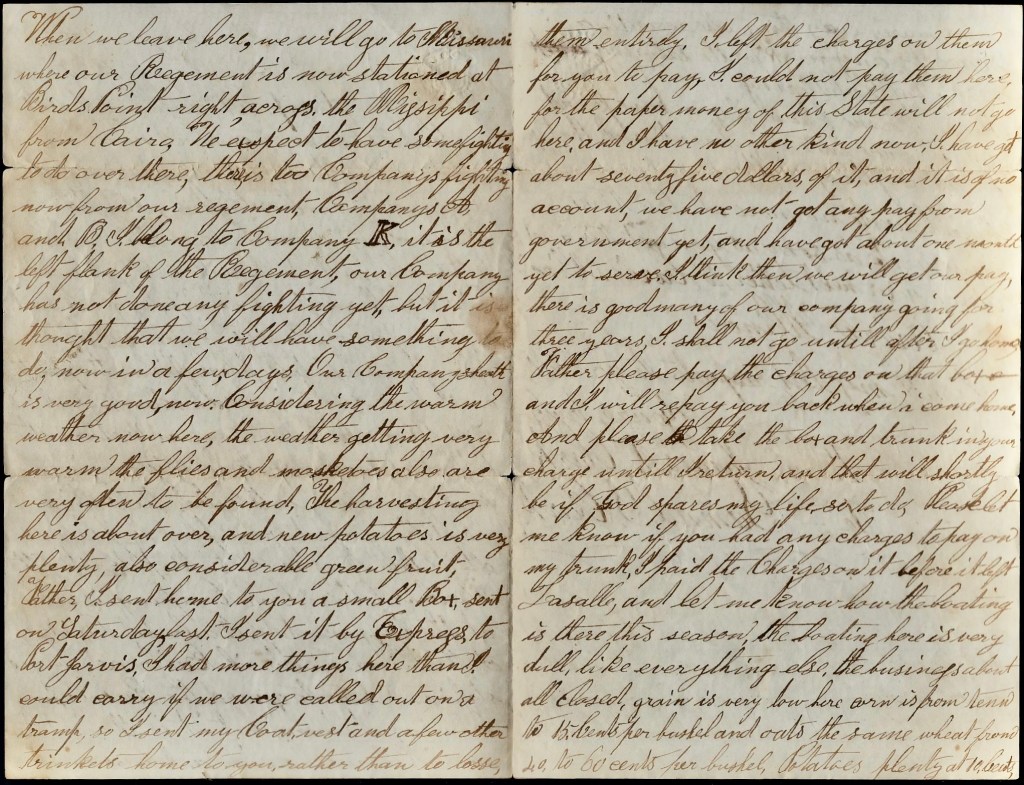 When we leave here, we will go to Missouri
where our Regement is now stationed at
Birds Point right across the Missippi
from Cairo, We expect to have some fighting
to do over there, there is too Companys fighting
now from our regement, Companys A,
and B, I belong to Company K, it is the
left flank of the Regement, our Company
has not done any fighting yet, but it is
thought that we will have something to
do, now in a few days, Our Company health
is very good, now, Considering the warm
weather now here, the weather getting very
warm the flies and masketoes also are
very often to be found, The harvesting
here is about over, and new potatoes is very
plenty, also considerable green fruit,
Father, I sent home to you a small Box, sent
on Saturday last. I sent it by Express, to
Port Jarvis, I had more things here than I
could carry if we were called out on a
tramp, so I sent my Coat, vest and a few other
trinkets home to you, rather than to losse,
them entirely, I left the charges on them
for you to pay, I could not pay them here,
for the paper money of this State will not go
here, and I have no other kind now, I have got
about seventy five dollars, of it, and it is of no
account, we have not got any pay from
government yet, and have got about one month
yet to serve, I think then we will get our pay,
there is good many of our company going for
three years, I shall not go untill after I go home,
Father, please pay the charges on that box
and I will repay you back when i come home,
And please to take the box and trunk in your
charge untill I return, and that will shortly
be if God spares my life, so to do, Please let
me know if you had any charges to pay on
my trunk, I paid the Charges on it before it left
Lasalle, and let me know how the boating
is there this season, the boating here is very
dull, like everything else, the business about
all closed, grain is very low here corn is from tenn
to 15 cents per bushel and oats the same wheat from
40, to 60 cents per bushel, Potatoes plenty at 10, cents,